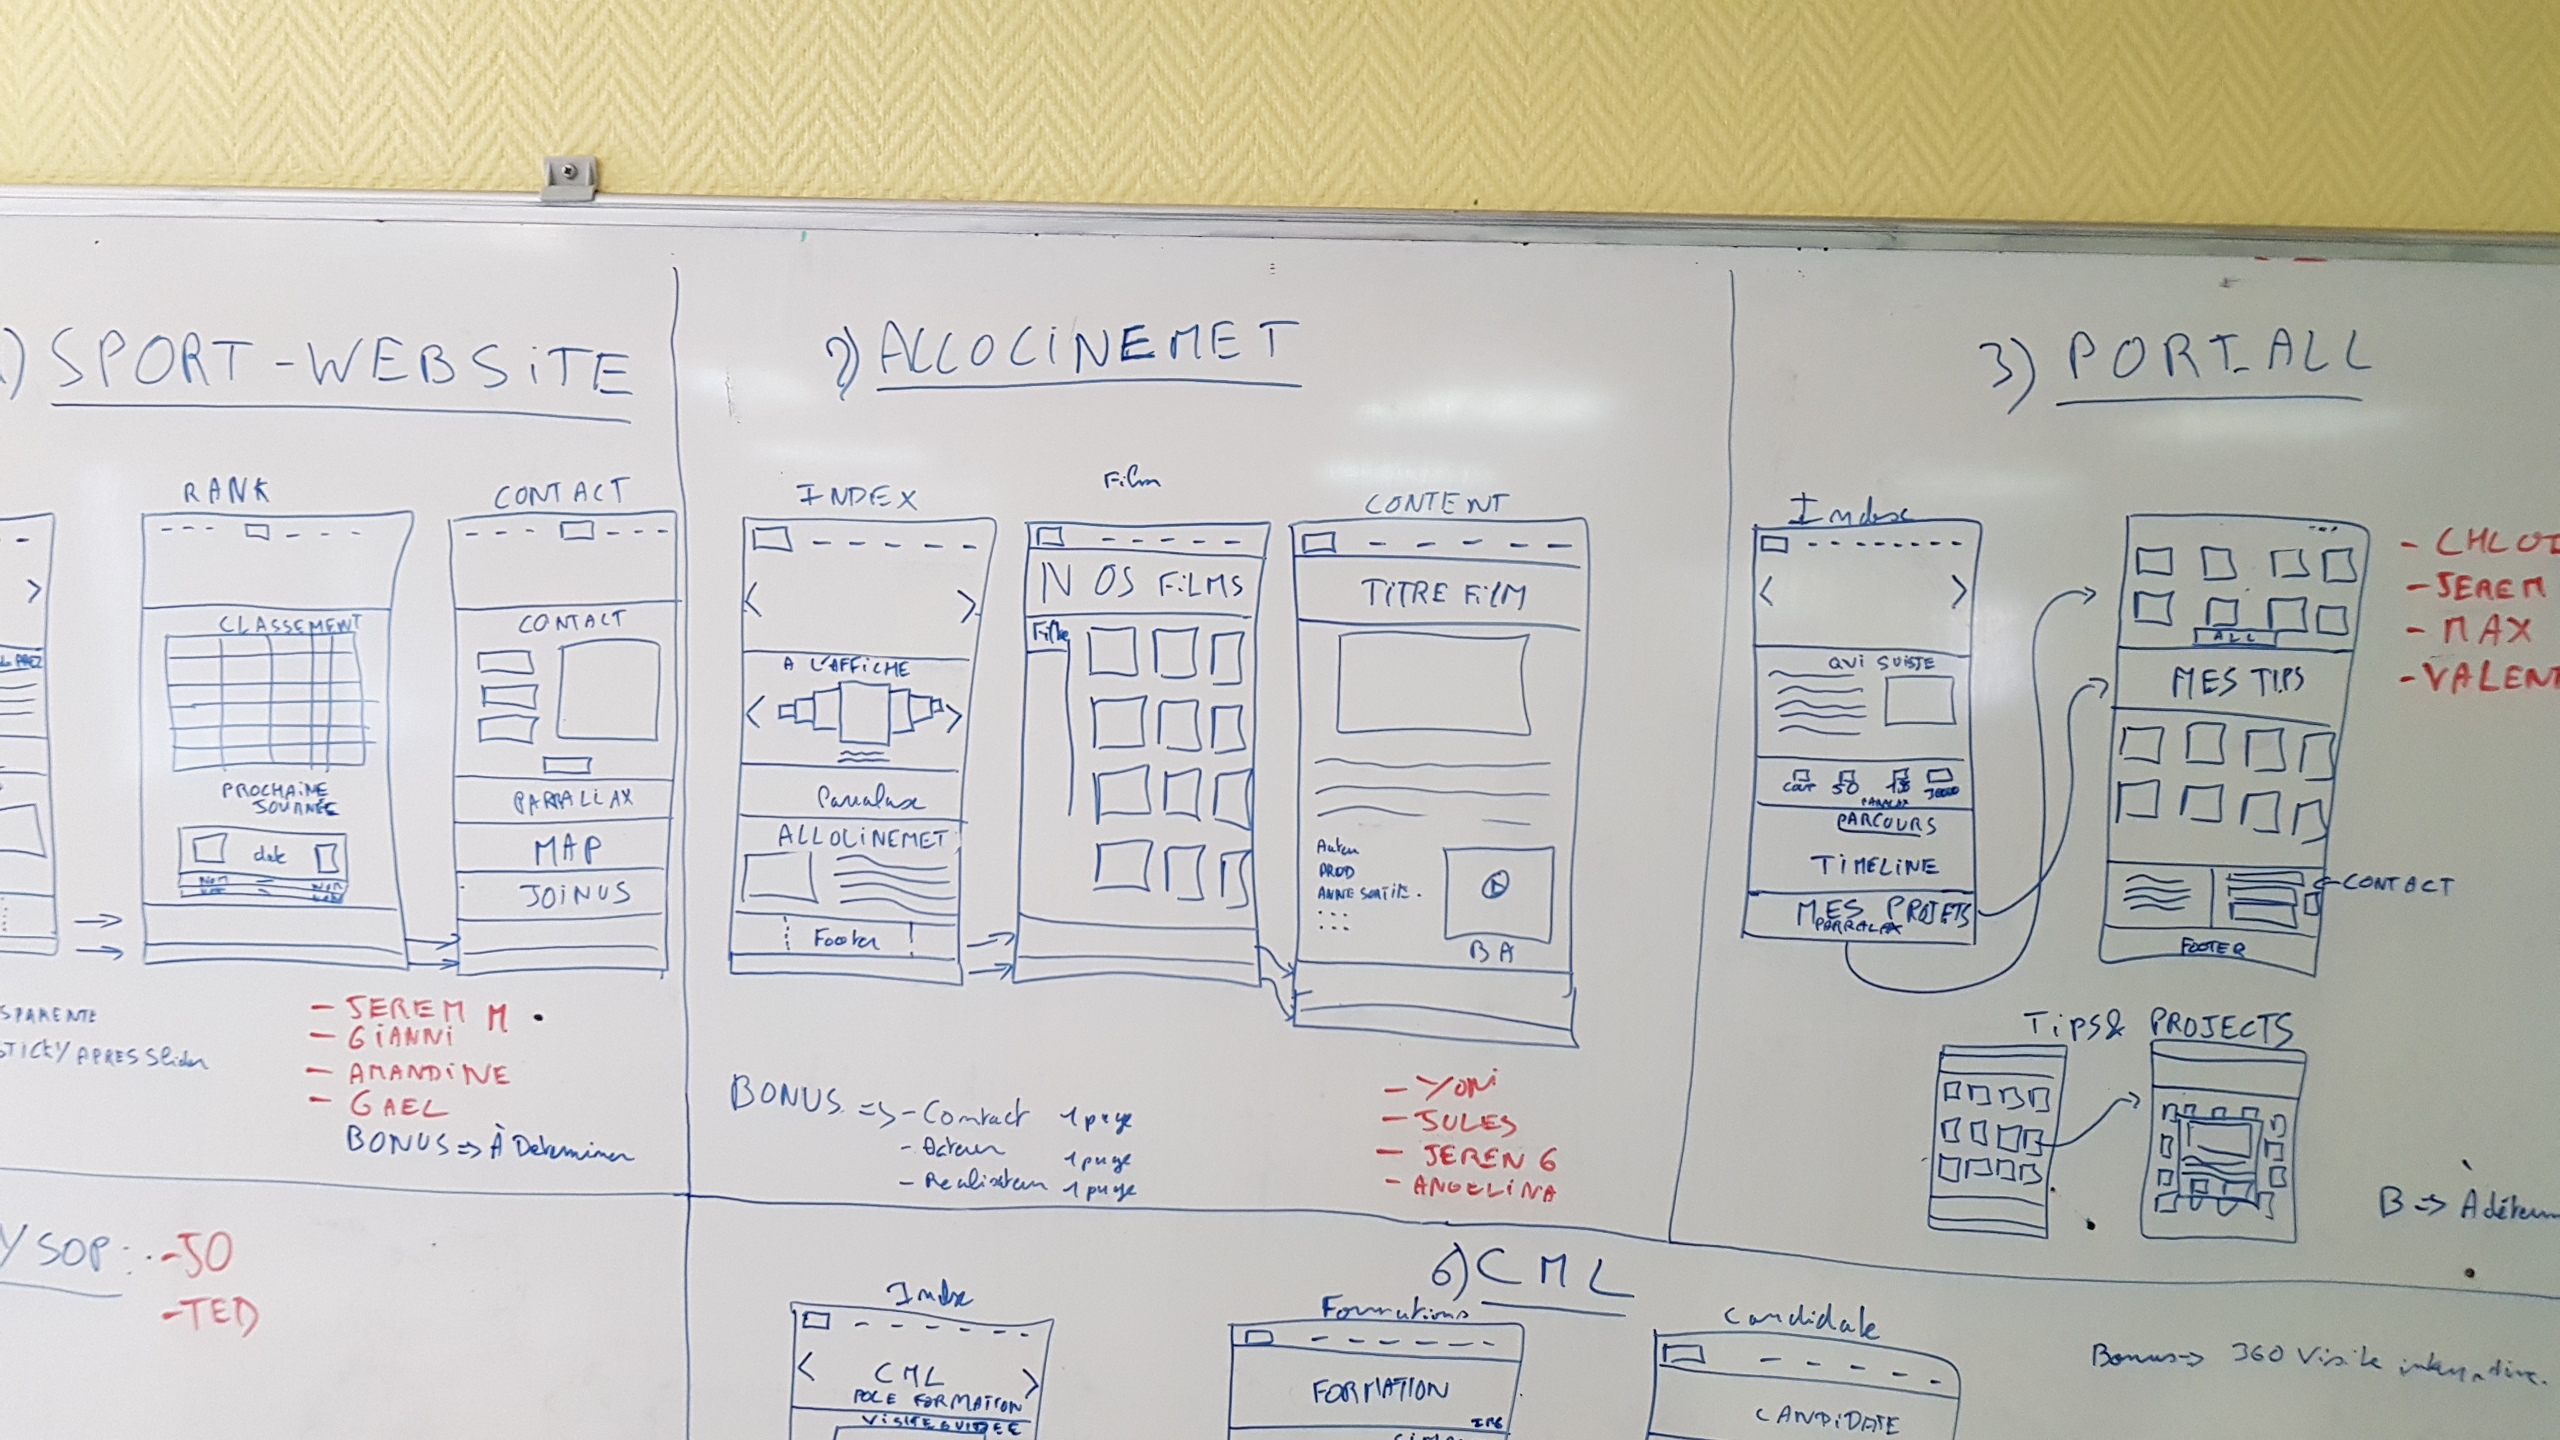 1) SPORT-WEBSITE
RANK
CLASSEMENT
PROCHAINE
JOURNÉE
date
CONTACT
CONTACT
PARRALLAX
MAP
JOINUS
SPARENTE
STICKY APRES Slider
- JEREM M
- GIANNI
- AMANDINE
- GAEL
BONUS => À Determiner
2) ALLOCINEMET
INDEX
A L'AFFICHE
Paralaxe
ALLOCINEMET
Footer
Film
NOS FILMS
Filtre
CONTENT
TITRE FILM
Auteur
PROD
ANNE SORTIE.
...
...
BA
BONUS => - Contact 1 page
- Acteur 1 page
- Realisateur 1 page
- YONI
- JULES
- JEREM G
- ANGELINA
3) PORT_ALL
Index
QUI SUISJE
PARALAX
PARCOURS
TIMELINE
MES PROJETS
PARRALAX
ALL
MES TIPS
CONTACT
FOOTER
- CHLO
- JEREM
- MAX
- VALENT
Tips & PROJECTS
B => À déterm
Y SOP:
- JO
- TED
6) CML
Index
CML
POLE FORMATION
VISITE GUIDEE
Formations
FORMATION
IMG
Candidate
CANDIDATE
Bonus => 360 Visite interactive.